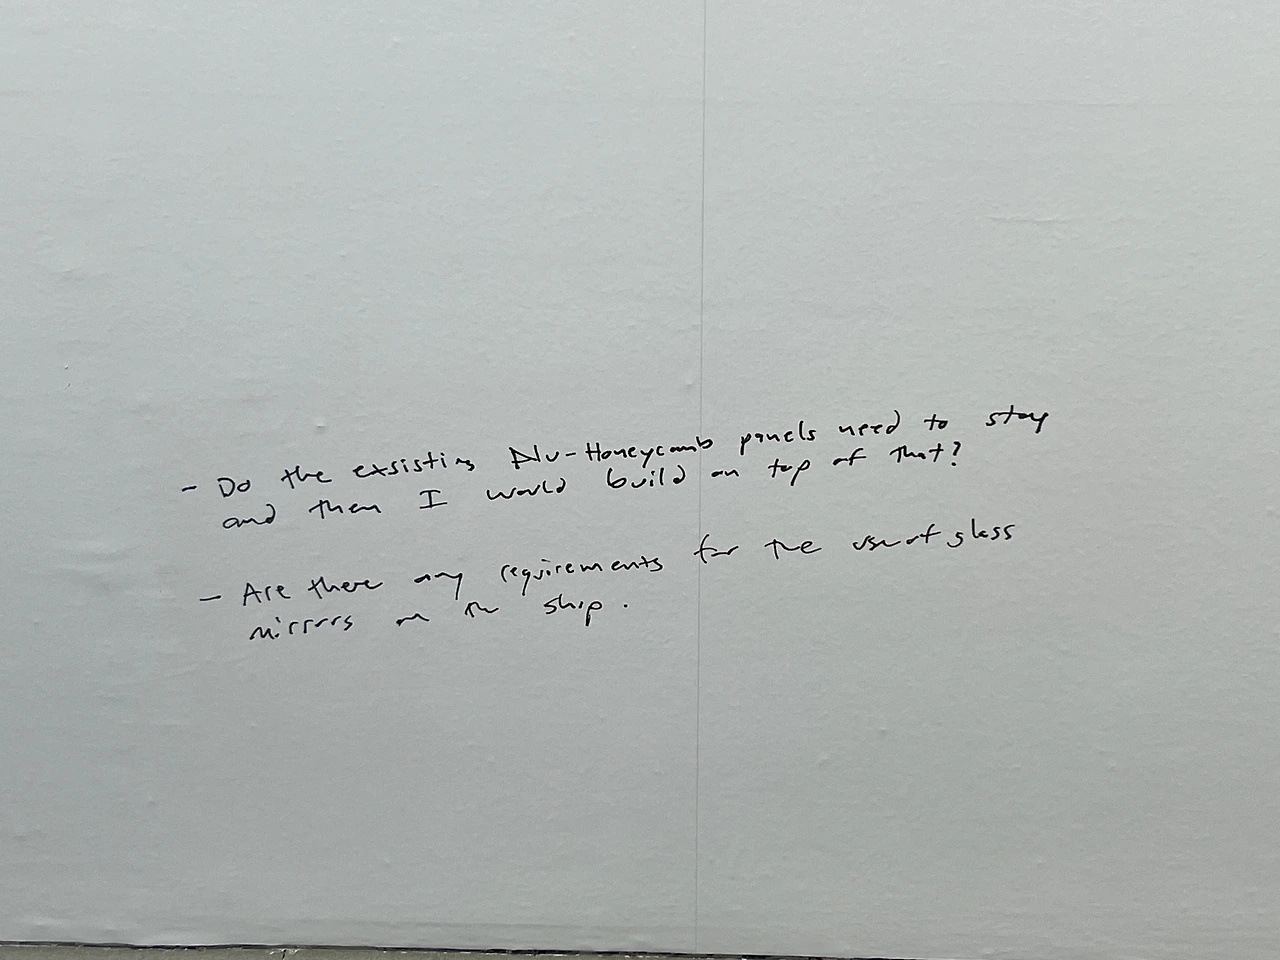 - Do the exsisting Alu-Honeycomb panels need to stay
and then I would build on top of that?
- Are there any requirements for the use of glass
mirrors on the ship.